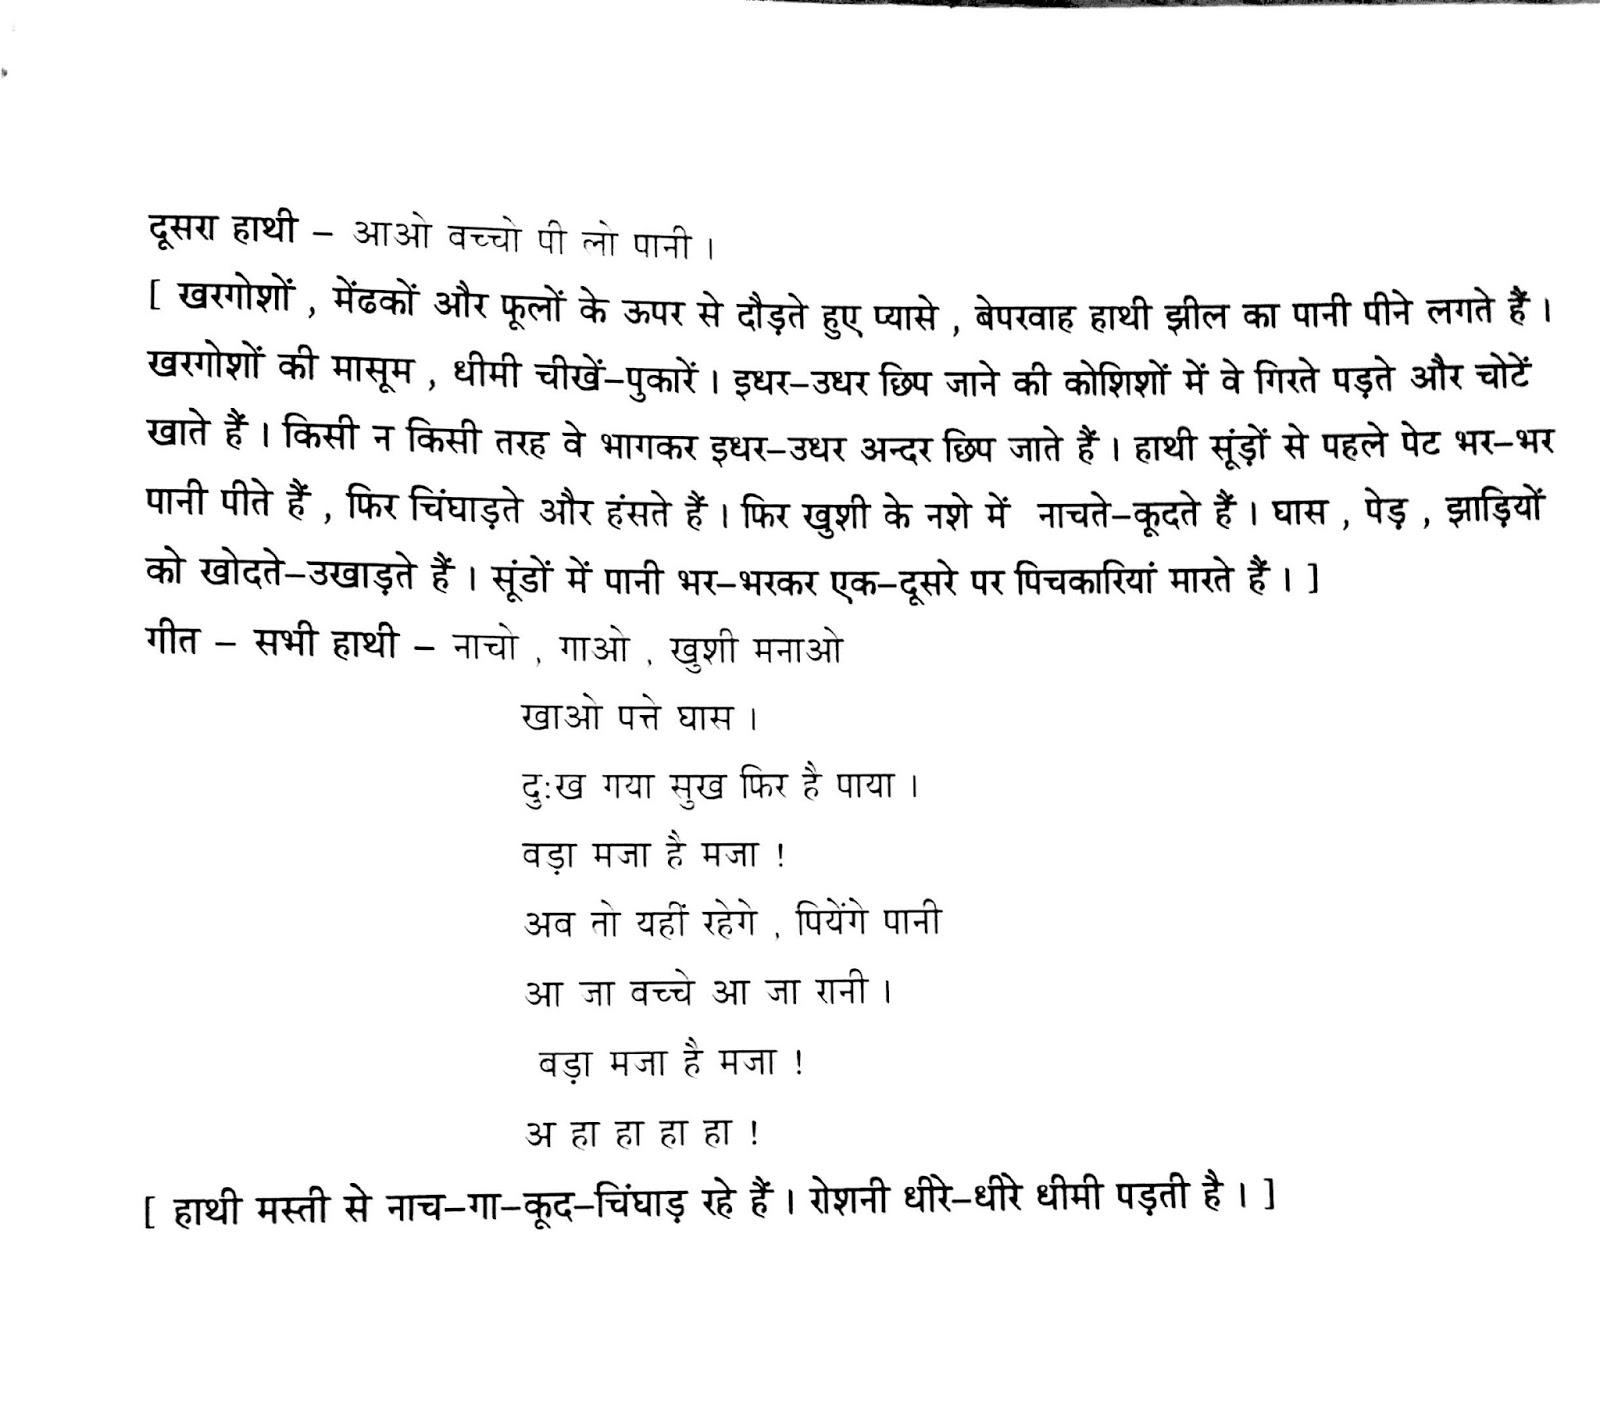 दूसरा हाथी – आओ वच्चो पी लो पानी ।
[ खरगोशों , मेंढकों और फूलों के ऊपर से दौड़ते हुए प्यासे , बेपरवाह हाथी झील का पानी पीने लगते हैं ।
खरगोशों की मासूम , धीमी चीखें–पुकारें । इधर–उधर छिप जाने की कोशिशों में वे गिरते पड़ते और चोटें
खाते हैं । किसी न किसी तरह वे भागकर इधर–उधर अन्दर छिप जाते हैं । हाथी सूंड़ों से पहले पेट भर–भर
पानी पीते हैं , फिर चिंघाड़ते और हंसते हैं । फिर खुशी के नशे में नाचते–कूदते हैं । घास , पेड़ , झाड़ियों
को खोदते–उखाड़ते हैं । सूंडों में पानी भर–भरकर एक–दूसरे पर पिचकारियां मारते हैं । ]
गीत – सभी हाथी – नाचो , गाओ , खुशी मनाओ
खाओ पत्ते घास ।
दुःख गया सुख फिर है पाया ।
वड़ा मजा है मजा !
अव तो यहीं रहेगे , पियेंगे पानी
आ जा वच्चे आ जा रानी ।
वड़ा मजा है मजा !
अ हा हा हा हा !
[ हाथी मस्ती से नाच–गा–कूद–चिंघाड़ रहे हैं । रोशनी धीरे–धीरे धीमी पड़ती है । ]